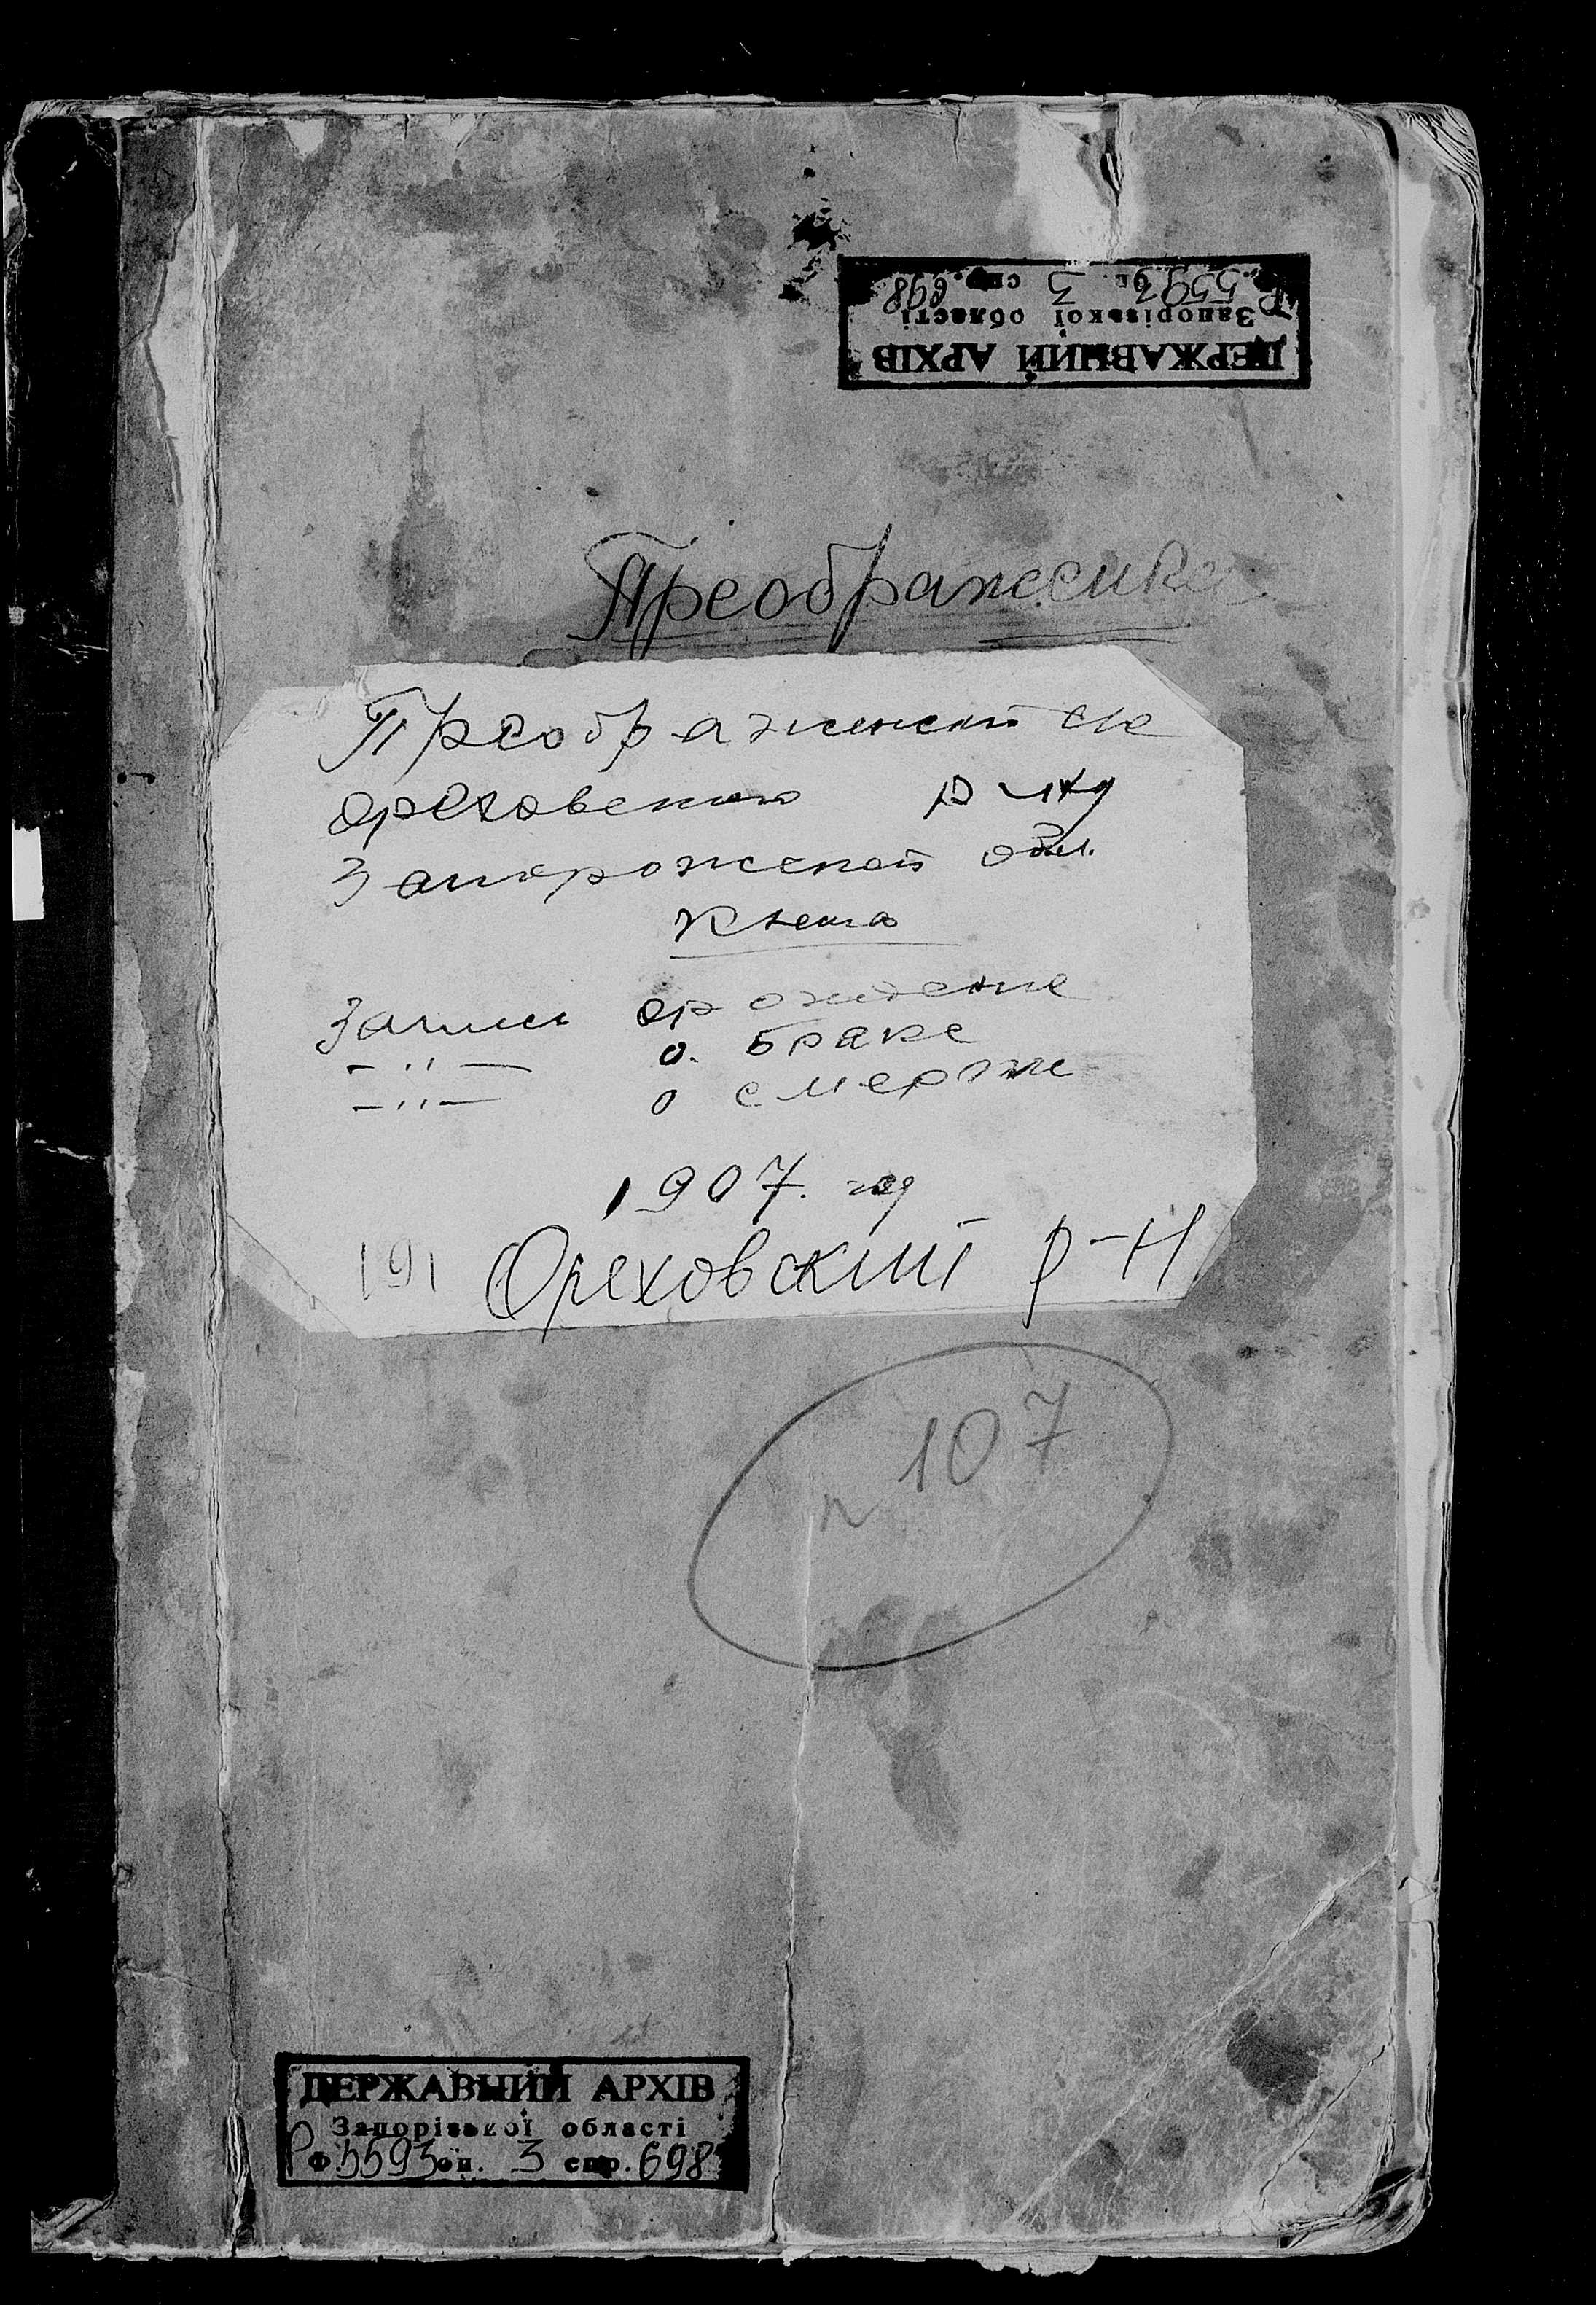 ДЕРЖАВНИЙ АРХІВ
Запорізької області
Р ф. 5593 оп. 3 спр. 698
Преображенка
Преображенский с/с
Ореховского р-на
Запорожской обл.
Книга
Записи о рождение
— " — о браке
— " — о смерти
1907. год
191 Ореховский р-н
107
ДЕРЖАВНИЙ АРХІВ
Запорізької області
Р ф. 5593 оп. 3 спр. 698